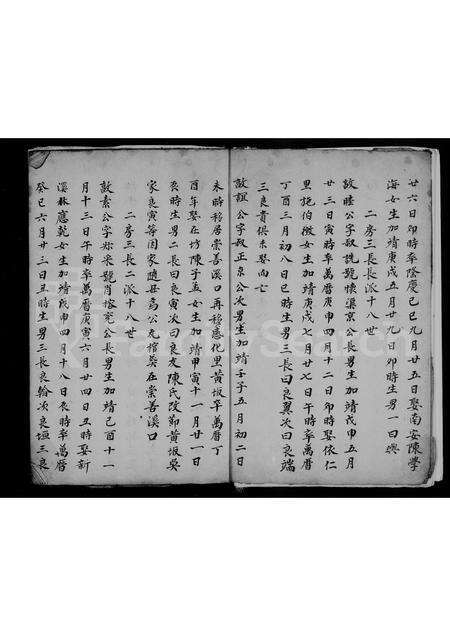 廿六日卯時卒隆慶己巳九月廿五日娶南安陳學
海女生加靖庚戌五月廿九日卯時生男一曰興
二房三長長派十八世
敦睦公字叔説號懷溪京公長男生加靖戊申五月
廿三日寅時卒萬曆庚申四月十二日卯時娶依仁
里施伯徵女生加靖庚戌七月廿七日午時卒萬曆
丁酉三月初八日巳時生男三長曰良翼次曰良端
三良貴俱未娶而亡
敦誼公字叔正京公次男生加靖壬子五月初二日
未時移居崇善溪口再移感化里黄坂卒萬曆丁
酉年娶在坊陳子孟女生加靖甲寅十一月廿一日
辰時生男二長曰良寅次曰良友陳氏改節黄坂吳
家良寅等因家随母焉公允棺葬在崇善溪口
二房三長二派十八世
敦素公字叔采號肖榕完公長男生加靖己酉十一
月十三日午時卒萬曆庚寅六月廿四日丑時娶新
溪林應乾女生加靖戊申四月十八日辰時卒萬曆
癸巳六月廿三日丑時生男三長良翰次良垣三良